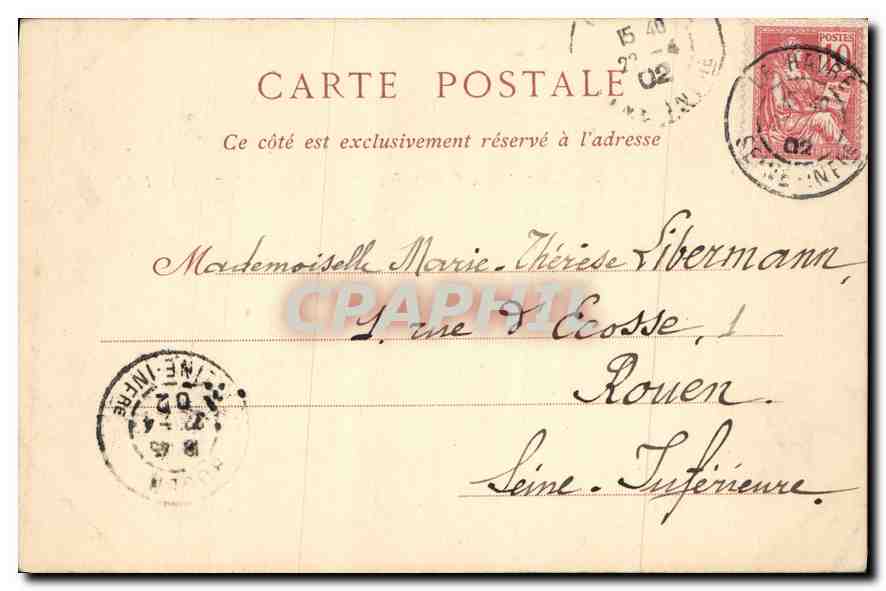 15 40
02
POSTES
10
LE HAVRE
02
SEINE-INFRE
CARTE POSTALE
Ce côté est exclusivement réservé à l'adresse
Mademoiselle Marie-Thérèse Libermann,
CPAPHIL
1, rue d'Ecosse, 1
Rouen.
Seine-Inférieure.
ROUEN
02
SEINE-INFRE